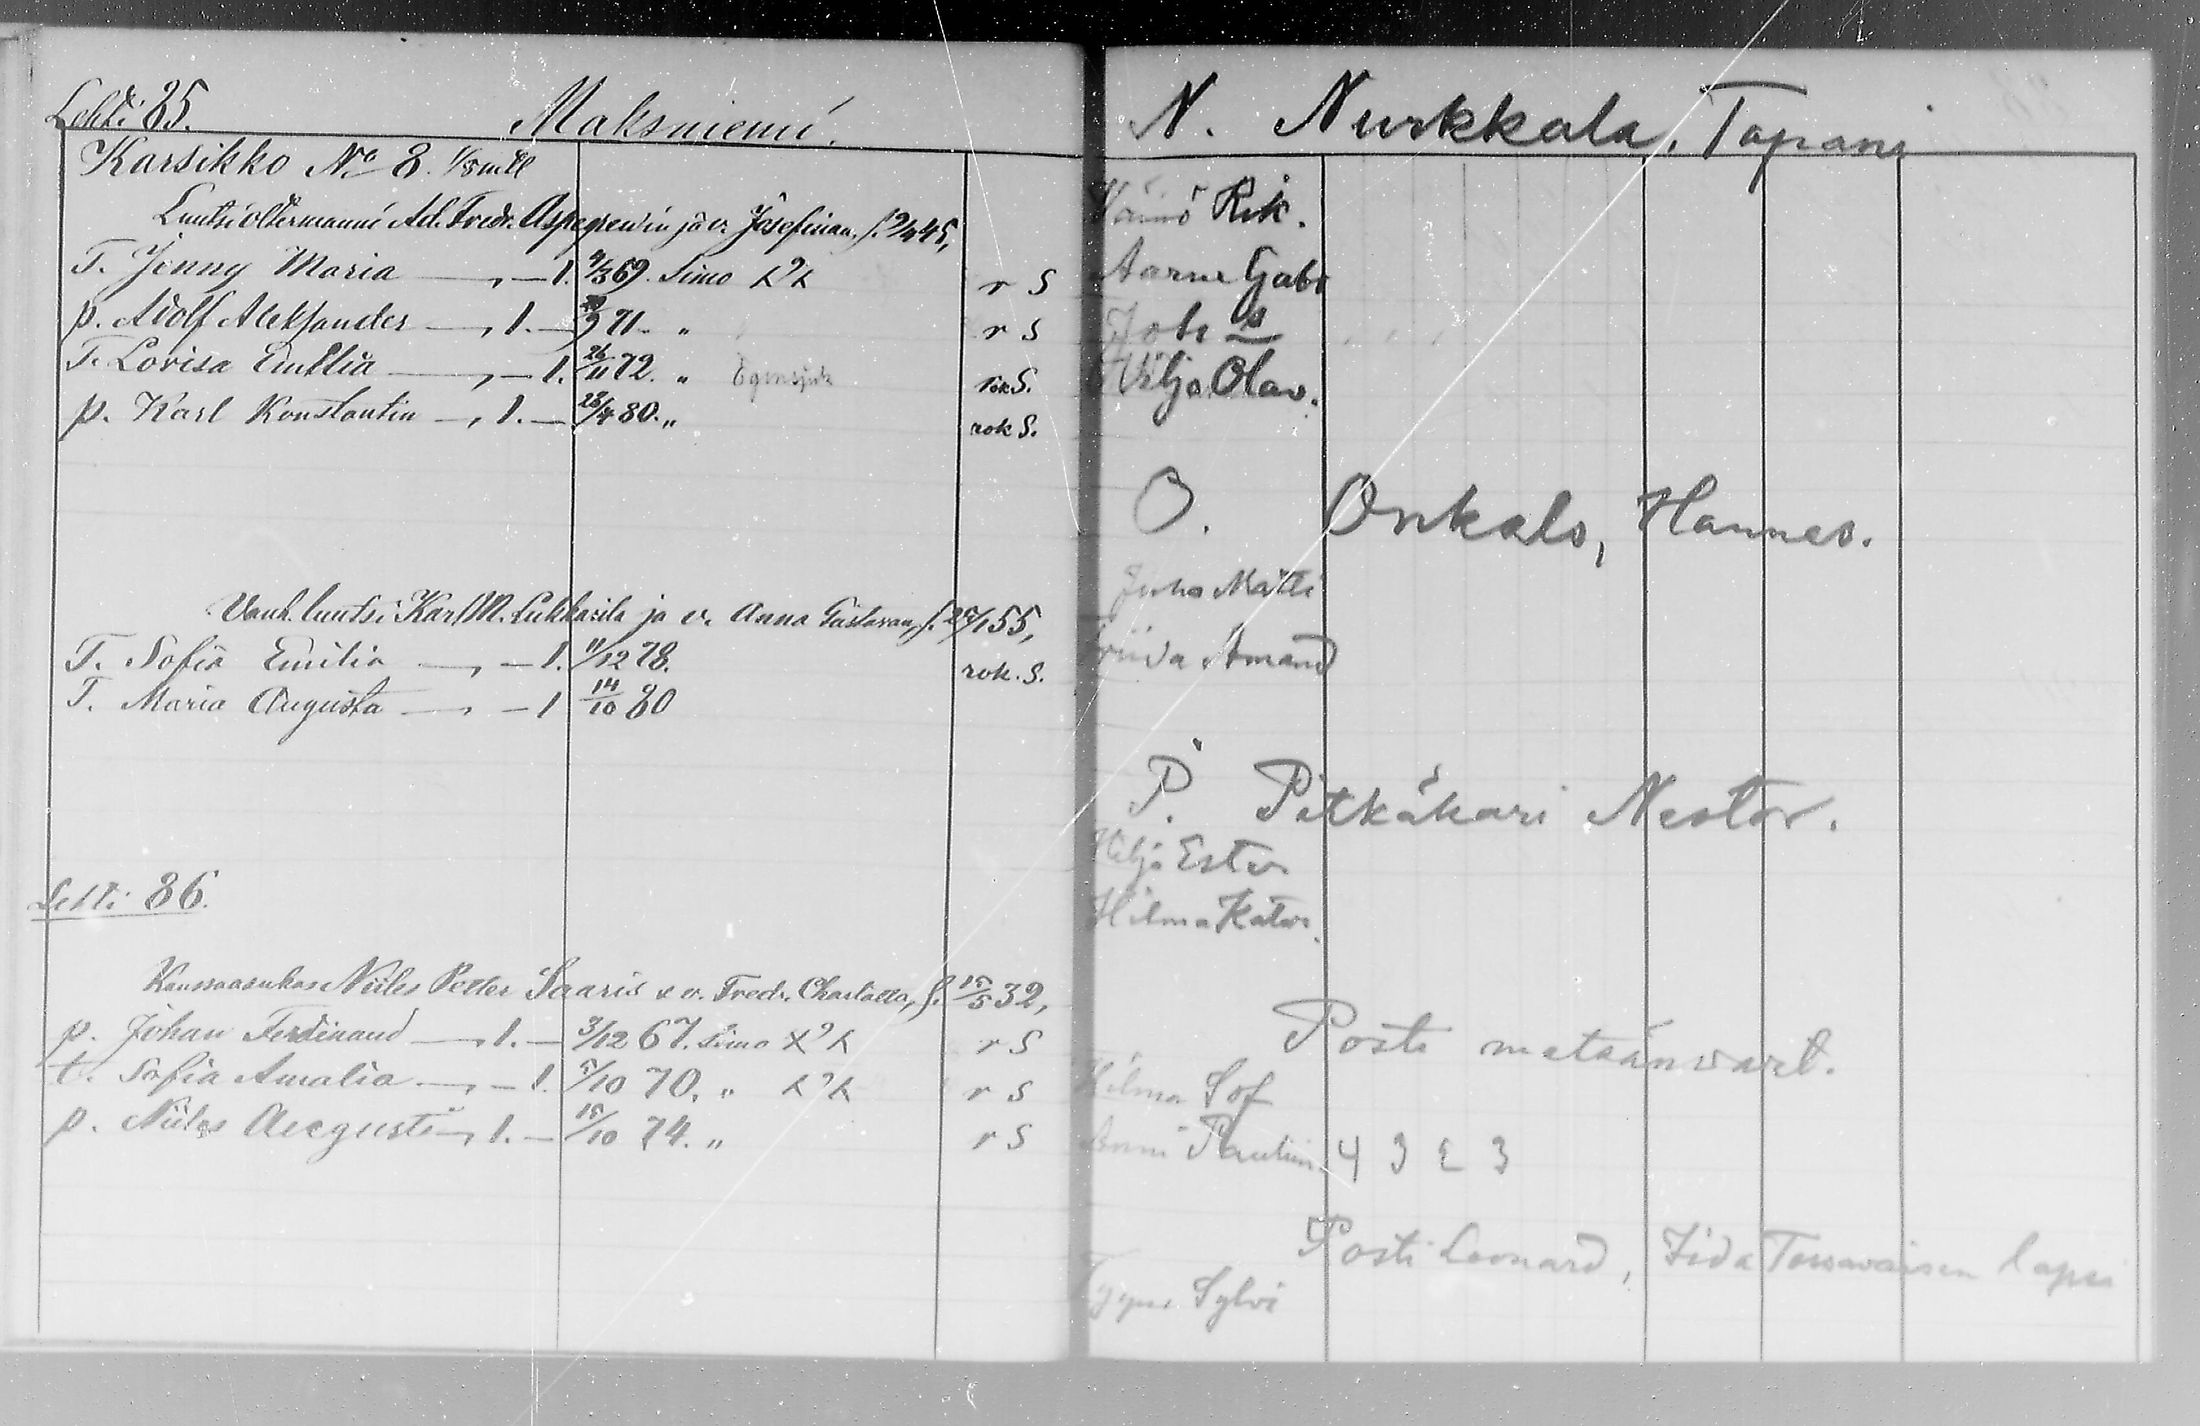 Lehti 85. Maksniemi.
Karsikko No 8. 1/8 mtl
Luotsioltermanni Ad. Fredr. Aspegrenin ja v. Josefinan, s. 9/4 45,
T. Jenny Maria — „ — l. 9/3 69. Simo
r S
p. Adolf Aleksander — „ l. — 9 71. „
r S
T. Lovisa Emilia — „ — l. 26/11 72. „
rok S.
p. Karl Konstantin — „ l. — 28/4 80. „
rok S.
Vanh. luotsi Karl M. Lukkarila ja v. Anna Gustavan, s. 29/1 55,
T. Sofia Emilia — „ — l. 11/12 78.
rok. S.
T. Maria Augusta — „ — l 14/10 80
Lehti 86.
Niiles Petter Saaris v. Fredr. Charlotta, s. 15/5 32,
p. Johan Ferdinand — „ l. — 3/12 67. Simo
r S
t. Sofia Amalia — „ — l. 5/10 70. „
r S
p. Niiles Augusti — „ l. — 15/10 74. „
r S
N. Nurkkala, Tapani
Väinö Rik.
Aarne Gabr
Viljo Olav.
O. Onkalo, Hannes.
Juho Matti
Friida Amand
P. Pitkäkari Nestor.
Ester
Hilma Katar.
Posti metsänvart.
Hilma Sof
Anni Paulin. 4 3 2 3
Posti Leonard, Iida Torvavaisen lapsi
Sylvi